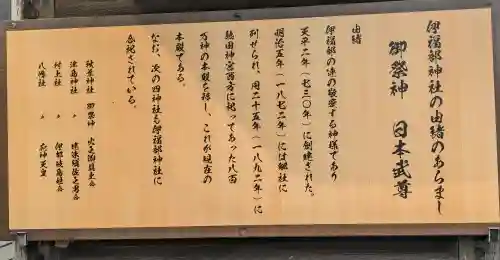 伊福部神社の由緒のあらまし
御祭神　日本武尊
由緒
伊福部の連の敬愛する神様であり
天平二年(七三〇年)に創建された。
明治五年(一八七二年)には郷社に
列せられ、同二十五年(一八九二年)に
熱田神宮西方に祀ってあった八百
万神の本殿を移し、これが現在の
本殿である。
なお、次の四神社も伊福部神社に
合祀されている。
秋葉神社　御祭神　火之迦具土命
津島神社　〃　建速須佐之男命
村上社　〃
八幡社　〃　応神天皇